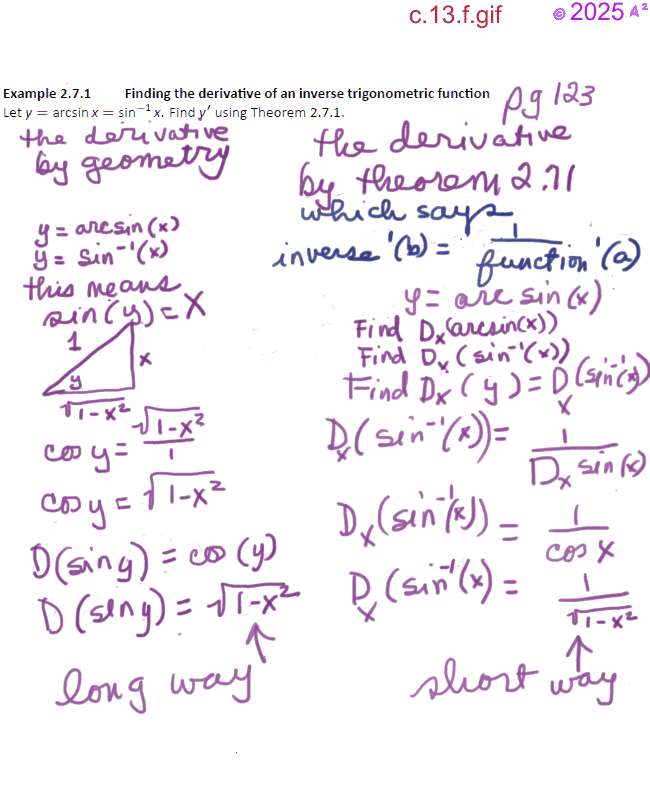 c.13.f.gif
© 2025 A²
Example 2.7.1 Finding the derivative of an inverse trigonometric function
Let y = arcsin x = sin⁻¹ x. Find y′ using Theorem 2.7.1.
pg 123
the derivative
by geometry
y = arcsin(x)
y = sin⁻¹(x)
this means
sin(y) = x
1
x
y
√1-x²
cos y = √1-x² / 1
cos y = √1-x²
D(sin y) = cos(y)
D(sin y) = √1-x²
long way
the derivative
by theorem 2.71
which says
inverse '(b) = 1 / function '(a)
y = arc sin(x)
Find Dx(arcsin(x))
Find Dx(sin⁻¹(x))
Find Dx(y) = Dx(sin⁻¹(x))
Dx(sin⁻¹(x)) = 1 / Dx sin(x)
Dx(sin⁻¹(x)) = 1 / cos x
Dx(sin⁻¹(x) = 1 / √1-x²
short way